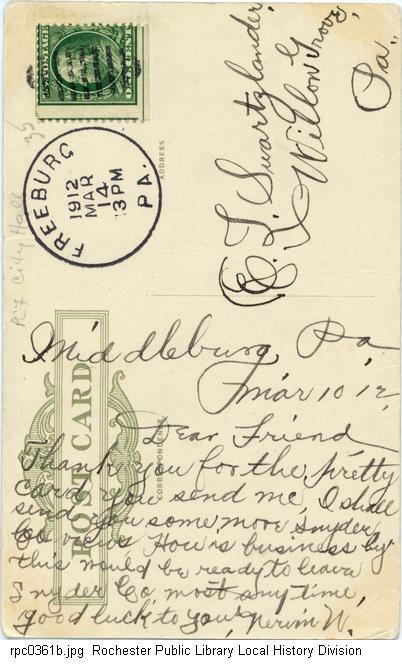 U.S. POSTAGE
ONE CENT
FREEBURG
1912
MAR
14
3 PM
PA.
ADDRESS
E L Swartzlander,
Willow Grove,
Pa.
R7 City Hall
35
POST CARD
CORRESPONDENCE
Middleburg Pa,
Mar 10 12,
Dear Friend
Thank you for the pretty
card you send me, I shall
send you some more Snyder
Co views How is business by
this would be ready to leave
Snyder Co most any time,
good luck to you,
rpc0361b.jpg Rochester Public Library Local History Division